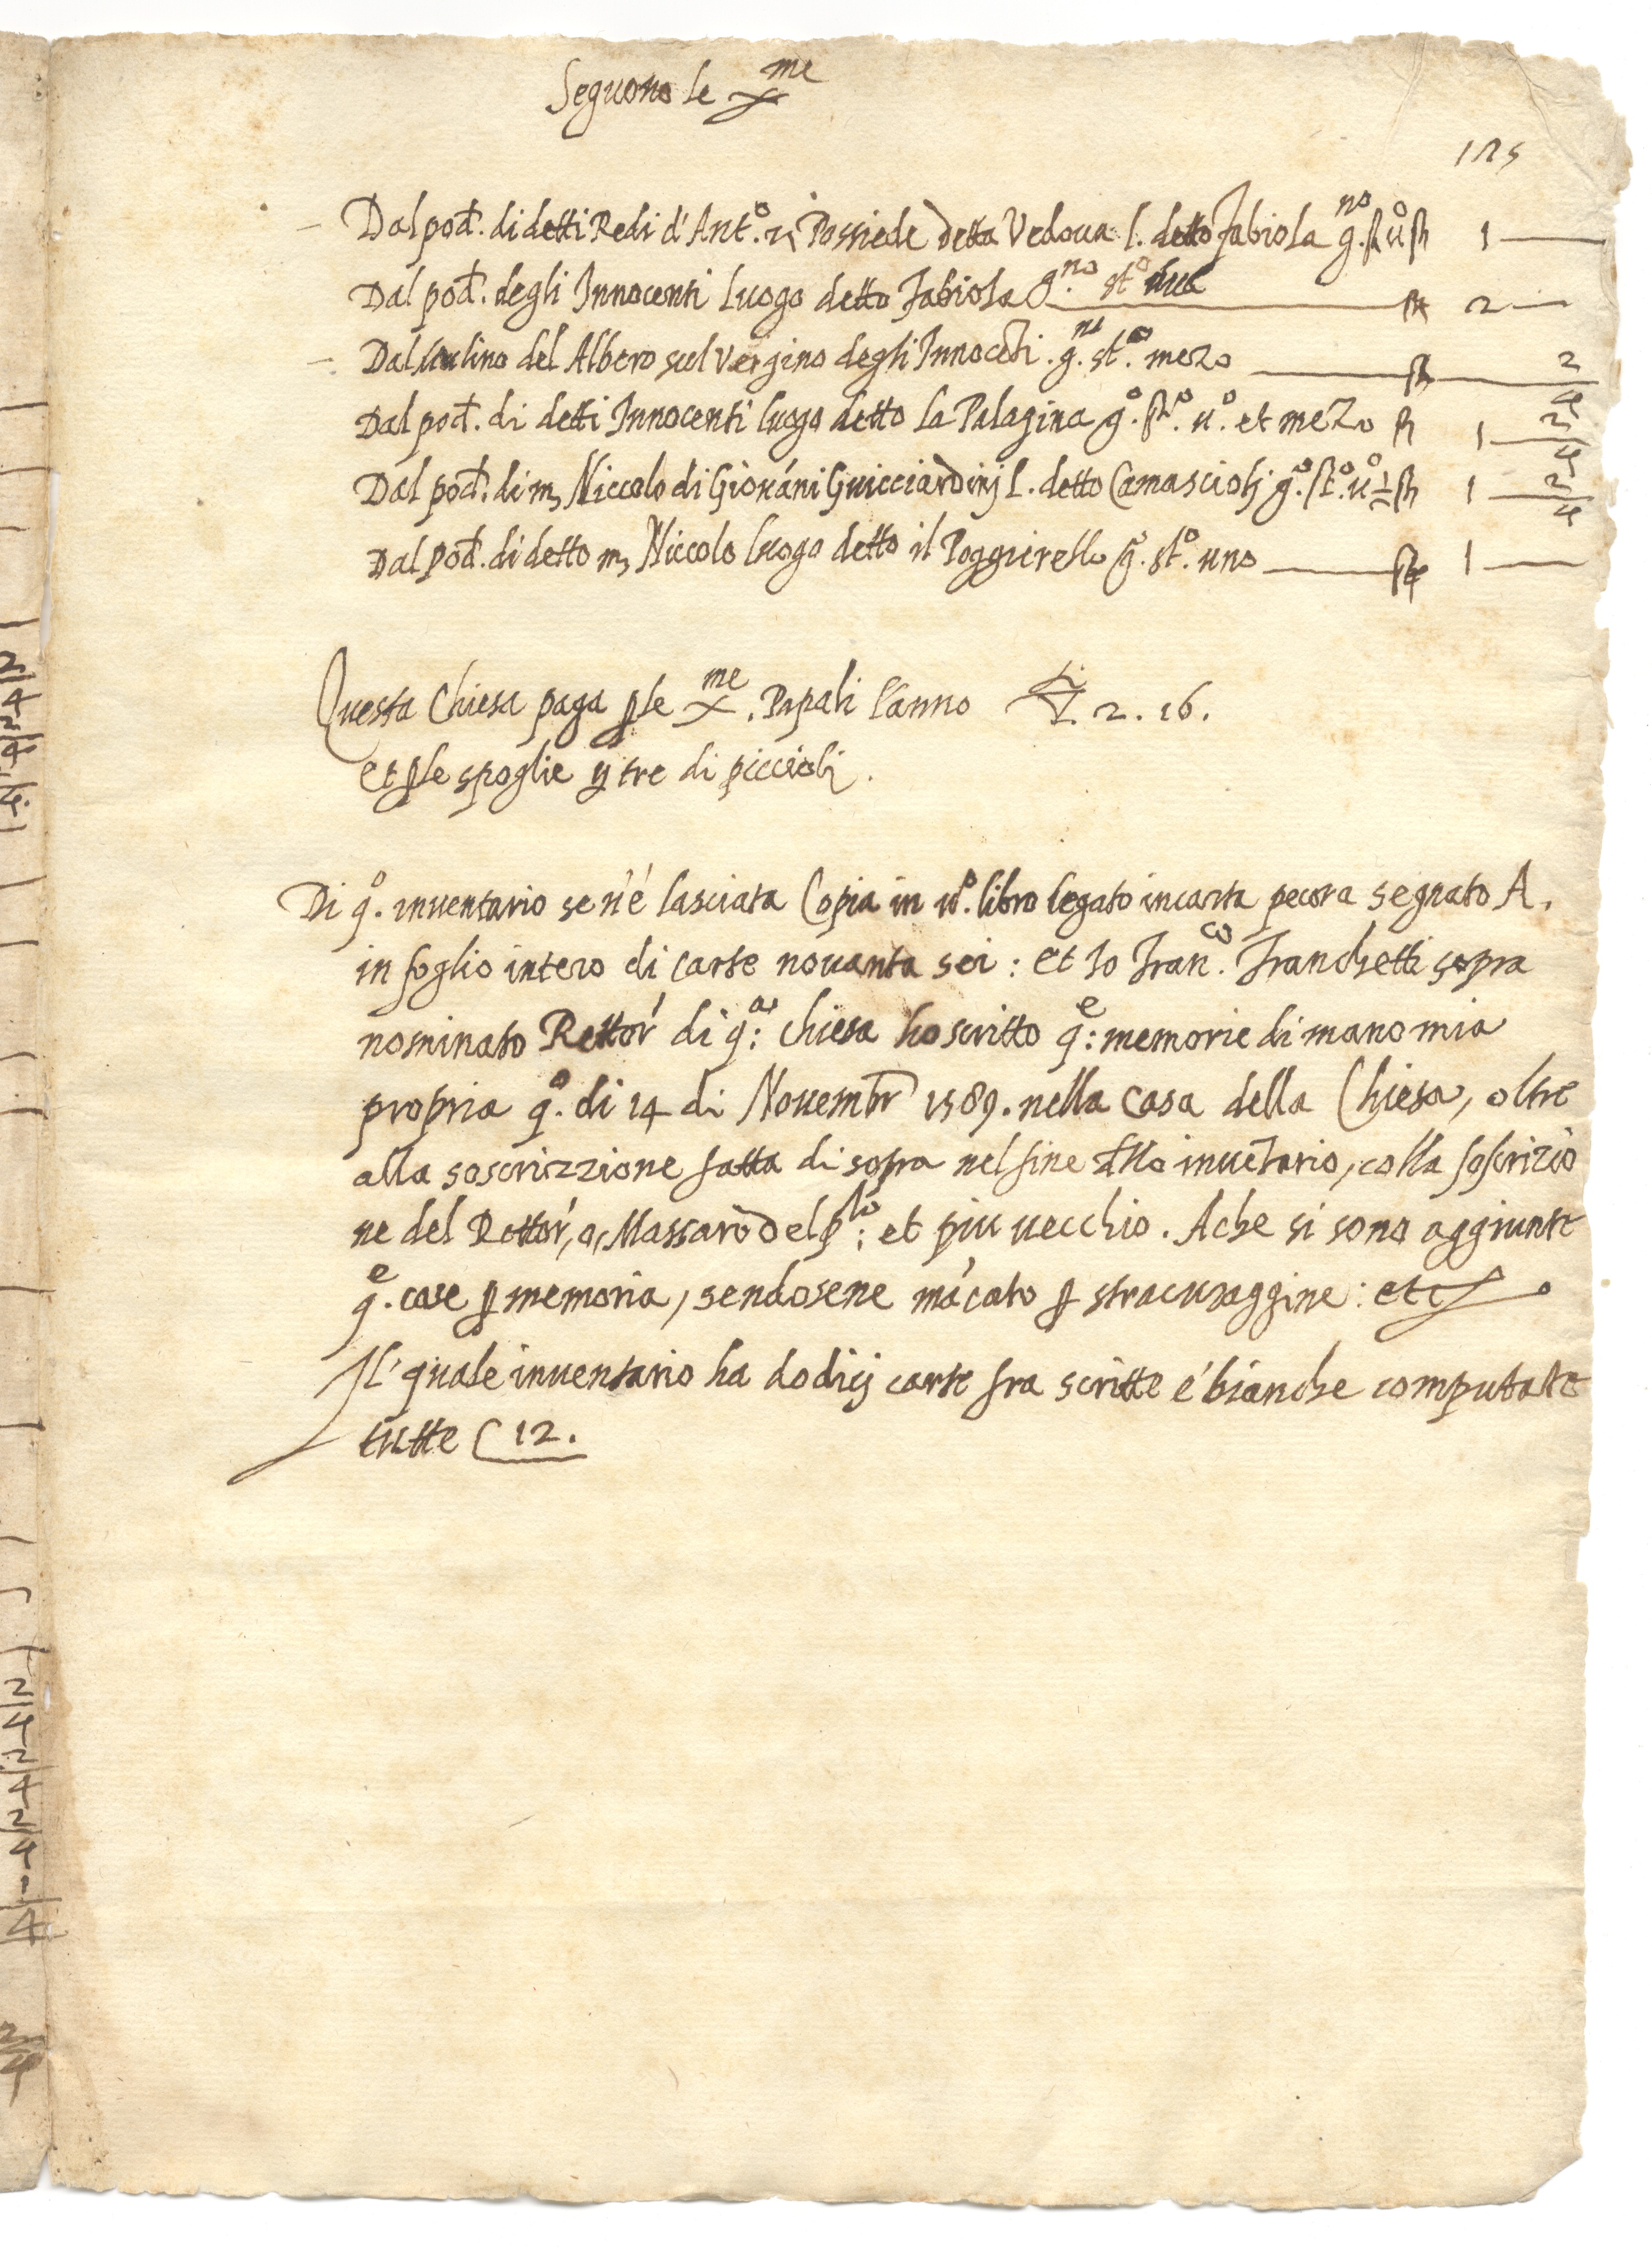 Seguono le X^me
125
Dal pod.^e di detti Redi d'Ant.^o possiede detta Vedoua l. detto Fabiola g.^no st.^o u^o st 1 —
Dal pod.^e degli Innocenti luogo detto Fabiola g.^no st^o due — st 2 —
Dal Mulino del Albero sul Vergino degli Innocēti. g.^no st.^o mezo — st — 2/4
Dal pod.^e di detti Innocenti luogo detto la Palagina g.^o st.^o u.^o et mezo st 1 — 2/4
Dal pod.^e di m, Niccolo di Giouáni Guicciardinj l. detto Camasciolj g.^o st.^o u^o ½ st 1 — 2/4
Dal pod.^e di detto m, Niccolo luogo detto il Poggierello g.^o st.^o uno — st 1 —
Questa Chiesa paga ꝑ le X^me. Papali l'anno 2. 16.
et ꝑ le spoglie tre di picciolj.
Di q.^o inuentario se n'é lasciata Copia in u^o. libro legato in carta pecora segnato A.
in foglio intero di carte nouanta sei: et Io Fran.^co Franchetti sopra
nominato Rettor' di q:^a chiesa ho scritto q:^e memorie di mano mia
propria q.^o di 14 di Nouembr 1589. nella casa della Chiesa, oltre
alla soscrizzione fatta di sopra nel fine dllo inuētario, colla soscrizio
ne del Rettor', o, Massaro del p:^lo et piu uecchio. Ache si sono aggiunte
q.^e cose ꝑ memoria, sendosene mácato ꝑ stracuraggine: etc
Il' quale inuentario ha dodicj carte fra scritte é bianche computate
tutte C 12.